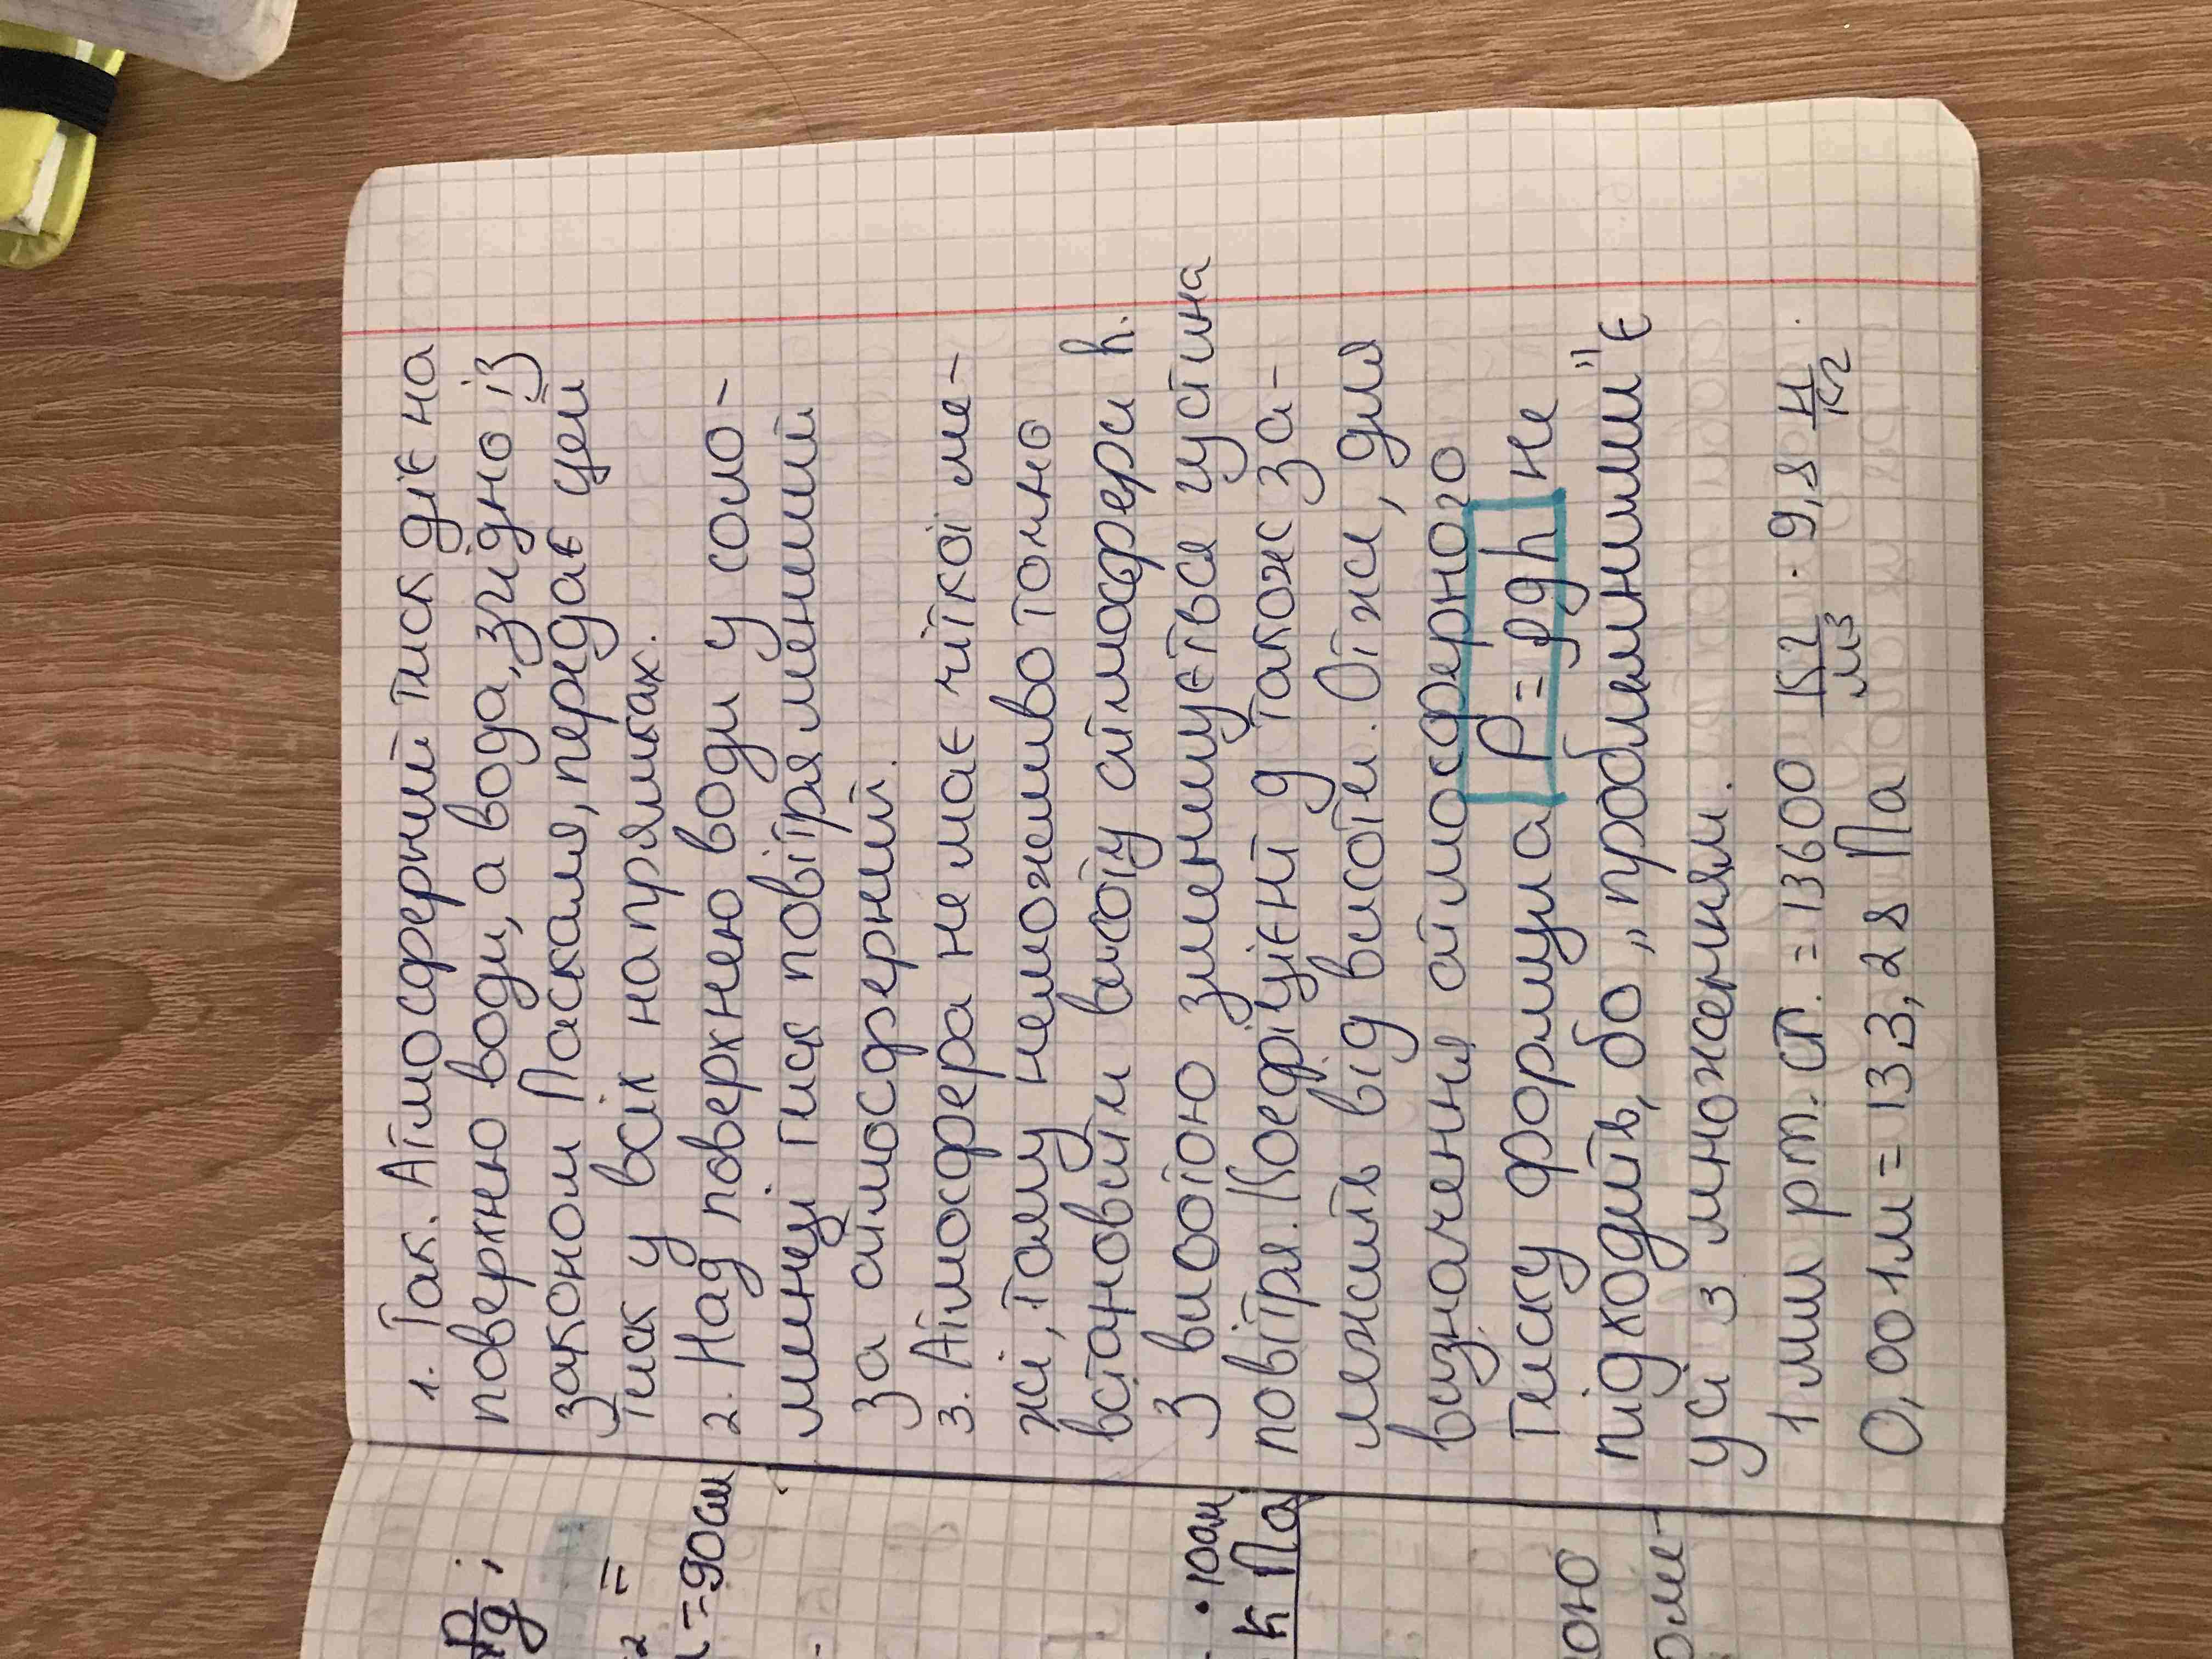 1. Так. Атмосферний тиск діє на
поверхню води, а вода, згідно із
законом Паскаля, передає цей
тиск у всіх напрямках.
2. Над поверхнею води у соло-
минці тиск повітря менший
за атмосферний.
3. Атмосфера не має чіткої ме-
жі, тому неможливо точно
встановити висоту атмосфери h.
З висотою зменшується густина
повітря. Коефіцієнт g також за-
лежить від висоти. Отже, для
визначення атмосферного
тиску формула P = ρgh не
підходить, бо „проблемними" є
усі 3 множення.
1 мм рт. ст. = 13600 кг/м³ · 9,8 Н/кг ·
0,001м = 133,28 Па
P/g ;
² =
= 90см
· 10см
к Па
оною